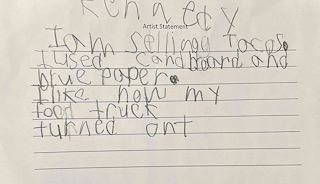 Kennedy
Artist Statement
I am selling tacos.
I used candboard and
blue paper.
I like how my
food truck
turned out